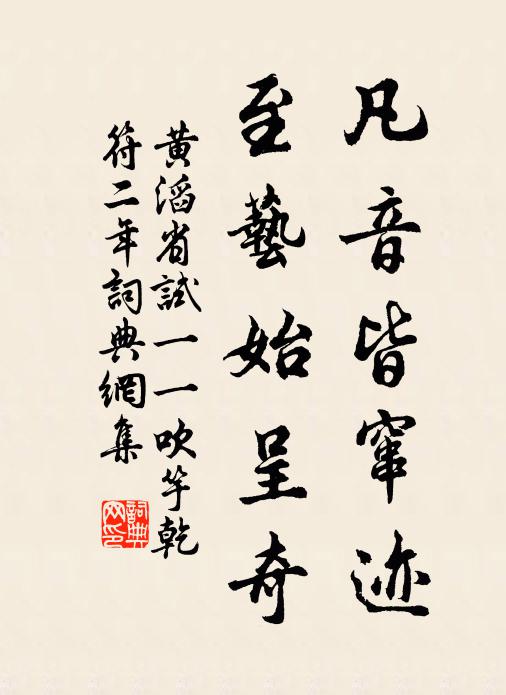 凡音皆窜迹
至藝始呈奇
黄滔省試一一吹竽乾
符二年詞典網集
詞典网印